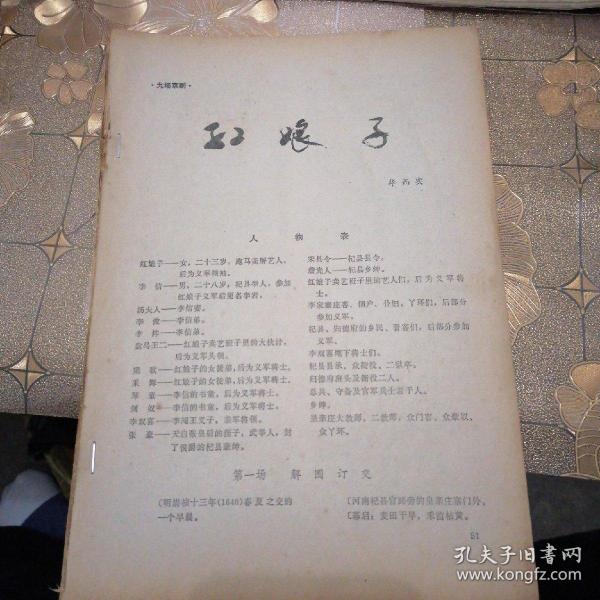 ·九场京剧·
红娘子
人物表
红娘子——女，二十三岁，跑马卖解艺人，
后为义军领袖。
李信——男，二十八岁，杞县举人，参加
红娘子义军后更名李岩。
汤夫人——李信妻。
李信弟。
李信弟。
红娘子卖艺班子里的大伙计，
后为义军头领。
红娘子的女徒弟，后为义军将士。
红娘子的女徒弟，后为义军将士。
琴童——李信的书童，后为义军将士。
剑奴——李信的书童，后为义军将士。
李双喜——李闯王义子，亲军将领。
张 天启皇后的侄子，武举人，封
了侯爵的杞县豪绅。
宋县令——杞县县令。
杞县乡绅。
红娘子卖艺班子里的艺人们，后为义军将
士。
李家寨庄客、佃户、仆妇、丫环们，后部分
参加义军。
杞县、归德府的乡民、饥民们，后部分参加
义军。
李双喜麾下将士们。
杞县县丞、众衙役、二狱卒。
归德府班头及衙役二人。
总兵、守备及官军兵士若干人。
乡绅。
皇亲庄大教师、二教师，众门客、众歌奴、
众丫环。
第一场 解围订交
〔明崇祯十三年(1640)春夏之交的
一个早晨。
〔河南杞县官路旁的皇亲庄寨门外。
〔幕启：麦田干旱，禾苗枯黄。
51
孔夫子旧书网
www.kongfz.com